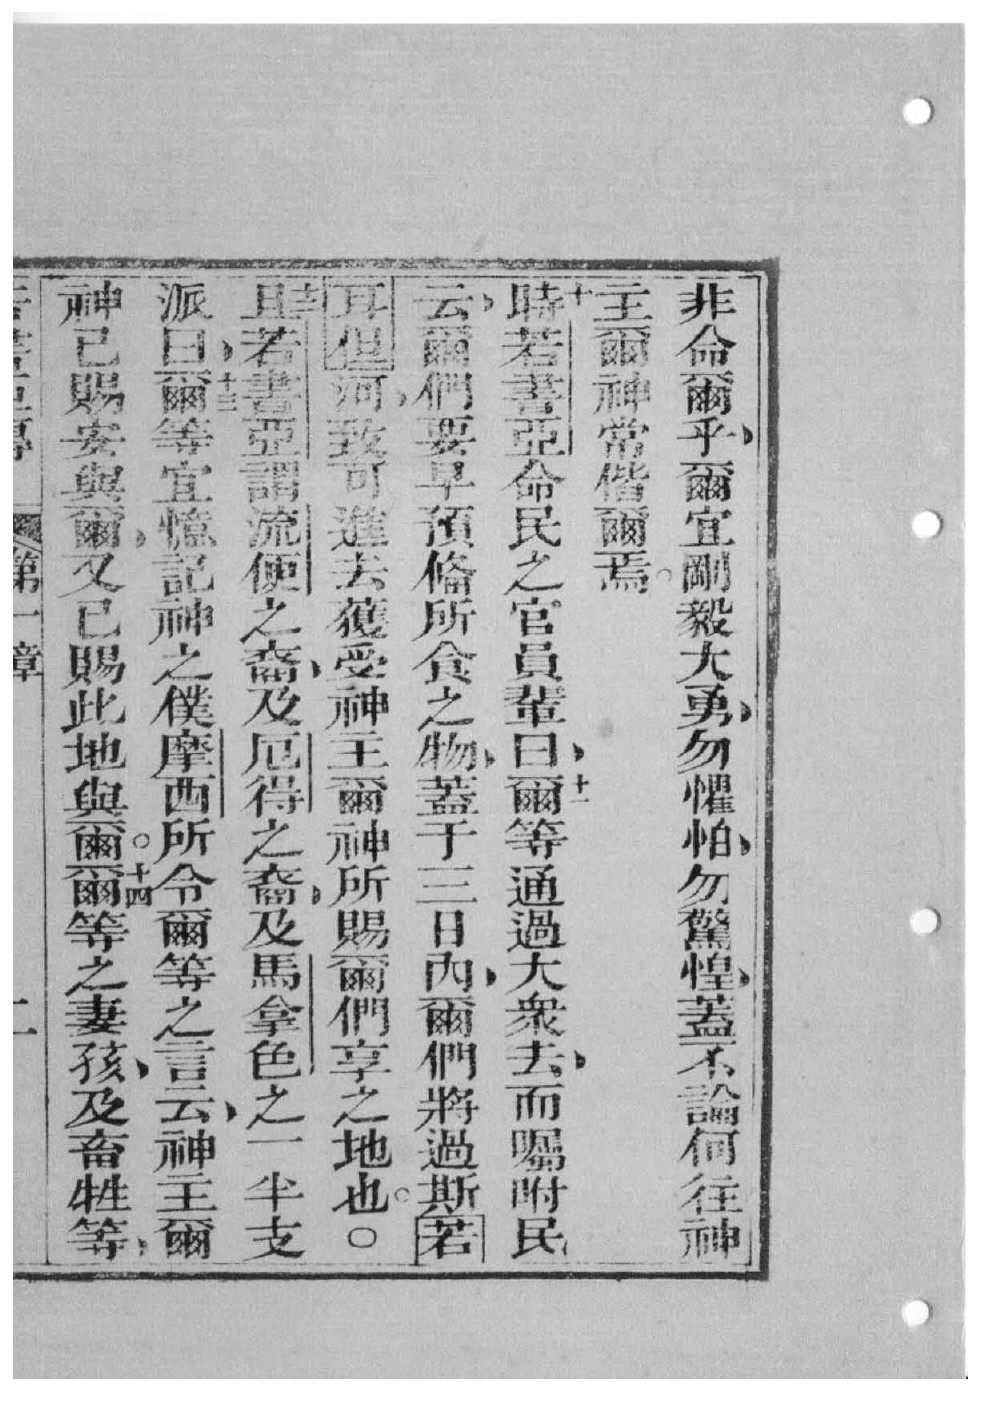 非命爾乎爾宜剛毅大勇勿懼怕勿驚惶蓋不論何往神
主爾神常偕爾焉。
十時若書亞命民之官員輩曰十一爾等通過大衆去而囑咐民
云爾們要早預俻所食之物蓋于三日內爾們將過斯若
耳但河致可進去獲受神主爾神所賜爾們享之地也。○
十二且若書亞謂流便之裔及厄得之裔及馬拿色之一半支
派曰十三爾等宜憶記神之僕摩西所令爾等之言云神主爾
神已賜安與爾又已賜此地與爾。十四爾等之妻孩及畜牲等
若書亞傳 第一章 二